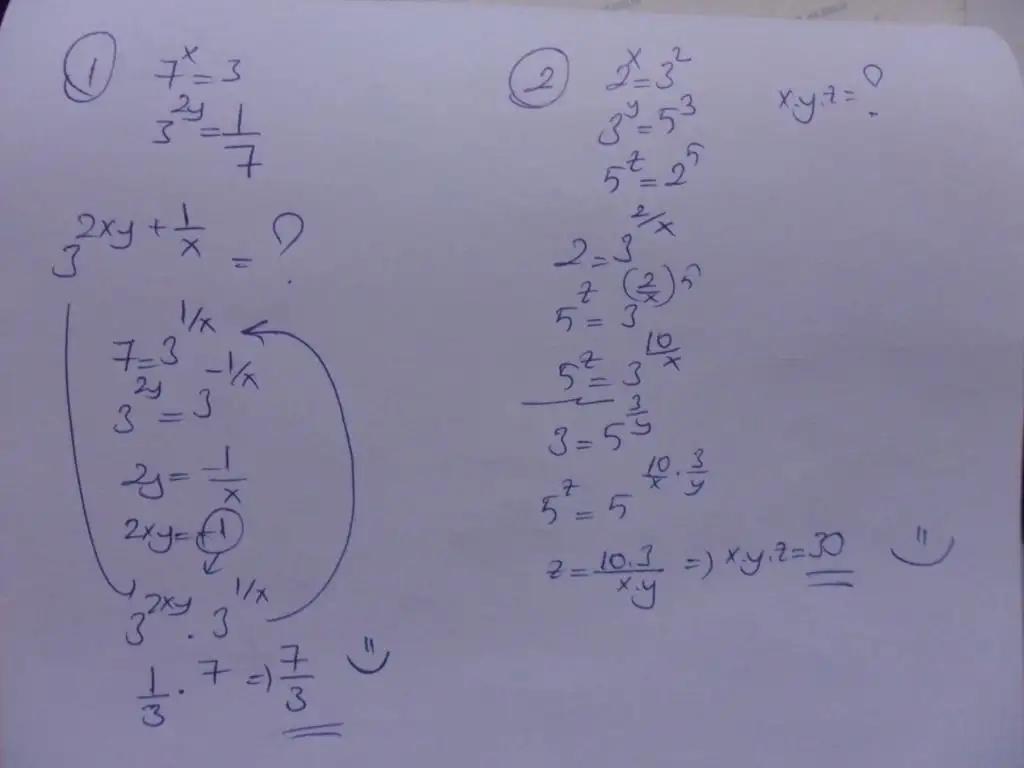 ①
7^x = 3
3^{2y} = 1/7
3^{2xy + 1/x} = ?
7 = 3^{1/x}
3^{2y} = 3^{-1/x}
2y = -1/x
2xy = -1
3^{2xy} . 3^{1/x}
1/3 . 7 => 7/3
②
2^x = 3^2
3^y = 5^3
5^z = 2^5
x.y.z = ?
2 = 3^{2/x}
5^z = 3^{(2/x)5}
5^z = 3^{10/x}
3 = 5^{3/y}
5^z = 5^{10/x . 3/y}
z = 10.3/x.y => x.y.z = 30